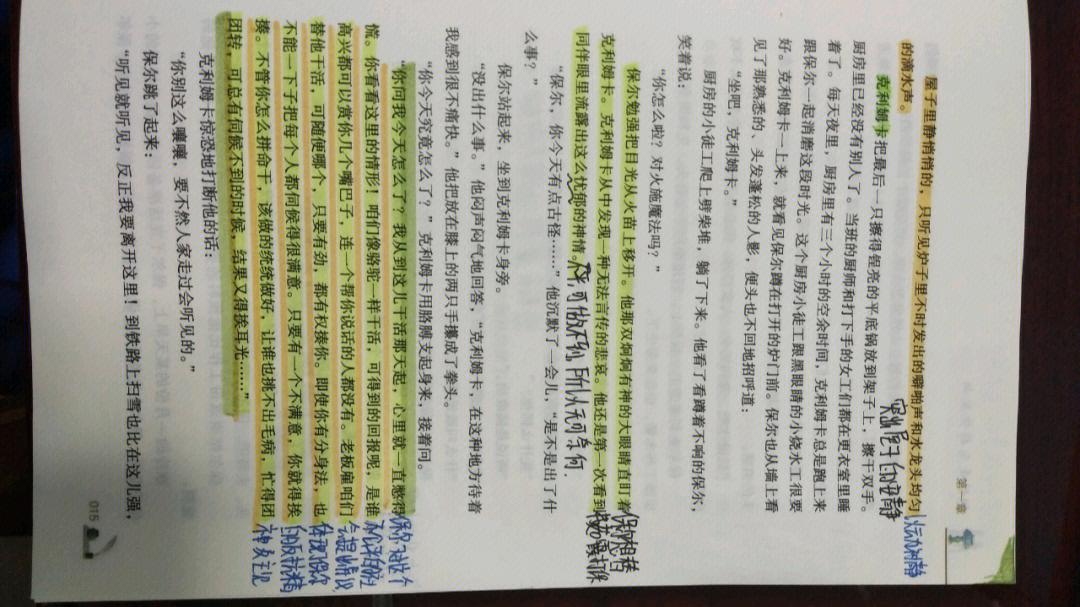 第一章
屋子里静悄悄的，只听见炉子里不时发出的噼啪声和水龙头均匀
的滴水声。
以动衬静
突出屋子的寂静
克利姆卡把最后一只擦得锃亮的平底锅放到架子上，擦干双手。
厨房里已经没有别人了。当班的厨师和打下手的女工们都在更衣室里睡
着了。每天夜里，厨房里有三个小时的空余时间，克利姆卡总是跑上来
跟保尔一起消磨这段时光。这个厨房小徒工跟黑眼睛的小烧水工很要
好。克利姆卡一上来，就看见保尔蹲在打开的炉门前。保尔也从墙上看
见了那熟悉的、头发蓬松的人影，便头也不回地招呼道：
“坐吧，克利姆卡。”
厨房的小徒工爬上劈柴堆，躺了下来。他看了看蹲着不响的保尔，
笑着说：
“你怎么啦？对火施魔法吗？”
保尔勉强把目光从火苗上移开。他那双炯炯有神的大眼睛直盯着
克利姆卡。克利姆卡从中发现一种无法言传的悲哀。他还是第一次看到
同伴眼里流露出这么忧郁的神情。
“保尔，你今天有点古怪……”他沉默了一会儿，“是不是出了什
么事？”
保尔站起来，坐到克利姆卡身旁。
“没出什么事。”他闷声闷气地回答，“克利姆卡，在这种地方待着
我感到很不痛快。”他把放在膝上的两只手攥成了拳头。
“你今天究竟怎么了？”克利姆卡用胳膊支起身来，接着问。
“你问我今天怎么了？我从到这儿干活那天起，心里就一直憋得
慌。你看看这里的情形！咱们像骆驼一样干活，可得到的回报呢，是谁
高兴都可以赏你几个嘴巴子，连一个帮你说话的人都没有。老板雇咱们
替他干活，可随便哪个，只要有劲，都有权揍你。即使你有分身法，也
不能一下子把每个人都伺候得很满意。只要有一个不满意，你就得挨
揍。不管你怎么拼命干，该做的统统做好，让谁也挑不出毛病，忙得团
团转，可总有伺候不到的时候，结果又得挨耳光……”
体现保尔
的反抗精
神
克利姆卡惊恐地打断他的话：
“你别这么嚷嚷，要不然人家走过会听见的。”
保尔跳了起来：
“听见就听见，反正我要离开这里！到铁路上扫雪也比在这儿强，
015